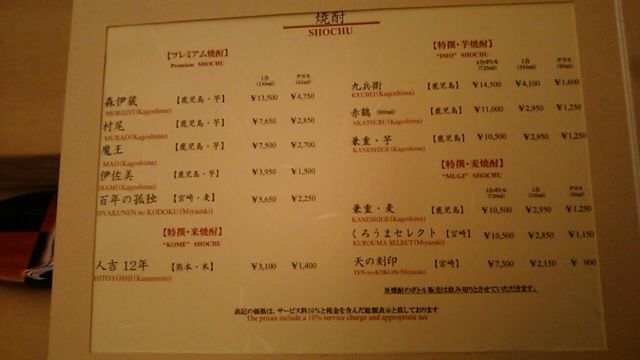 焼酎
SHOCHU
【プレミアム焼酎】
Premium SHOCHU
1合 グラス
(180ml) (60ml)
森伊蔵 【鹿児島・芋】 ¥13,500 ¥4,750
MORIIZO (Kagoshima)
村尾 【鹿児島・芋】 ¥7,650 ¥2,850
MURAO (Kagoshima)
魔王 【鹿児島・芋】 ¥7,500 ¥2,700
MAO (Kagoshima)
伊佐美 【鹿児島・芋】 ¥3,950 ¥1,500
ISAMI (Kagoshima)
百年の孤独 【宮崎・麦】 ¥5,650 ¥2,250
HYAKUNEN no KODOKU (Miyazaki)
【特撰・米焼酎】
"KOME" SHOCHU
人吉 12年 【熊本・米】 ¥3,100 ¥1,400
HITOYOSHI (Kumamoto)
【特撰・芋焼酎】
"IMO" SHOCHU
4合ボトル 1合 グラス
(720ml) (180ml) (60ml)
九兵衛 【鹿児島】 ¥14,500 ¥4,100 ¥1,600
KYUBEI (Kagoshima)
赤鶴 (900ml) 【鹿児島】 ¥11,000 ¥2,950 ¥1,250
AKATSURU (Kagoshima)
兼重・芋 【鹿児島】 ¥10,500 ¥2,950 ¥1,250
KANESHIGE (Kagoshima)
【特撰・麦焼酎】
"MUGI" SHOCHU
4合ボトル 1合 グラス
(720ml) (180ml) (60ml)
兼重・麦 【鹿児島】 ¥10,500 ¥2,950 ¥1,250
KANESHIGE (Kagoshima)
くろうまセレクト 【宮崎】 ¥10,500 ¥2,850 ¥1,150
KUROUMA SELECT (Miyazaki)
天の刻印 【宮崎】 ¥7,300 ¥2,150 ¥ 900
TEN-no-KOKUIN (Miyazaki)
※焼酎のボトル販売は飲み切りとさせていただきます。
表記の価格は、サービス料10%と税金を含んだ総額表示と致しております
The prices include a 10% service charge and appropriate tax